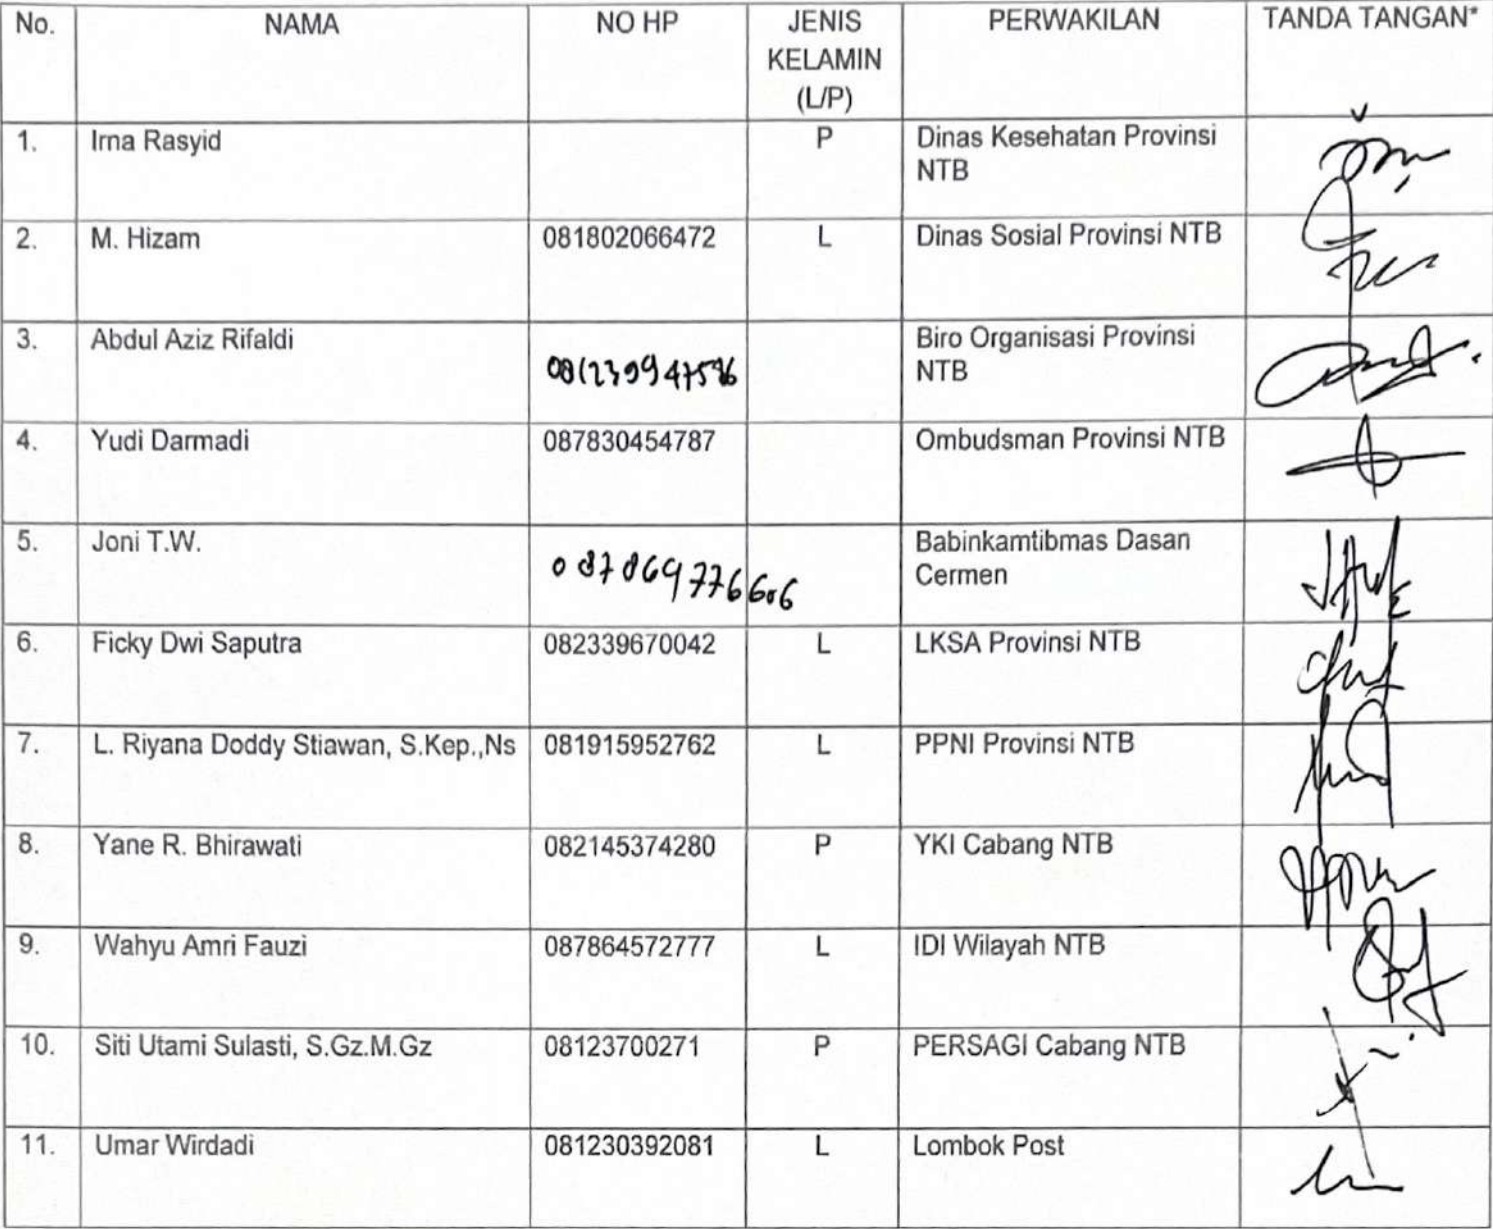 No. NAMA NO HP JENIS PERWAKILAN TANDA TANGAN*
KELAMIN
(L/P)
1. Irna Rasyid P Dinas Kesehatan Provinsi
NTB
2. M. Hizam 081802066472 L Dinas Sosial Provinsi NTB
3. Abdul Aziz Rifaldi Biro Organisasi Provinsi
NTB
4. Yudi Darmadi 087830454787 Ombudsman Provinsi NTB
5. Joni T.W. Babinkamtibmas Dasan
087869776606 Cermen
6. Ficky Dwi Saputra 082339670042 L LKSA Provinsi NTB
7. L. Riyana Doddy Stiawan, S.Kep.,Ns 081915952762 L PPNI Provinsi NTB
8. Yane R. Bhirawati 082145374280 P YKI Cabang NTB
9. Wahyu Amri Fauzi 087864572777 L IDI Wilayah NTB
10. Siti Utami Sulasti, S.Gz.M.Gz 08123700271 P PERSAGI Cabang NTB
11. Umar Wirdadi 081230392081 L Lombok Post